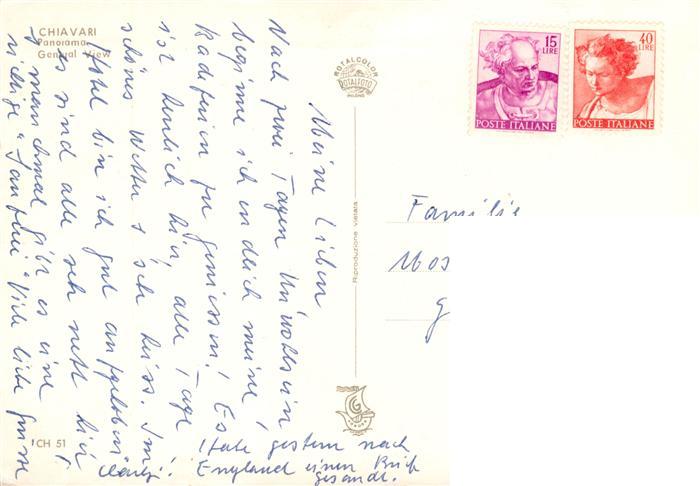 CHIAVARI
Panorama
General View
ROTALCOLOR
ROTALFOTO
MILANO
15
LIRE
POSTE ITALIANE
40
LIRE
POSTE ITALIANE
Riproduzione vietata
CH 51
Meine Lieben
Nach zwei Tagen Unwohlsein
beginne ich endlich meine
Badeferien zu geniessen! Es
ist herrlich hier, alle Tage
schönes Wetter & sehr heiss. Im
Hotel bin ich gut aufgehoben,
es sind alle sehr nett hier,
manchmal gibt es eine
richtige Viele liebe Grüsse
Habe gestern nach
England einen Brief
gesandt.
Familie
Mos
G